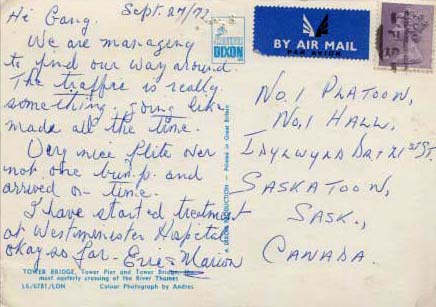 Hi Gang. Sept. 27/72
We are managing
to find our way around.
The traffic is really
something. going like
made all the time.
Very nice flite over
not one bump. and
arrived on time.
I have started treatment
at Westminster Hospital
okay so far - Eric & Marion
TOWER BRIDGE, Tower Pier and Tower Bridge, the
most easterly crossing of the River Thames
L6/6781/LON Colour Photograph by Andres
A DIXON PRODUCTION - Printed in Great Britain
DIXON
BY AIR MAIL
PAR AVION
No. 1 PLATOON,
No. 1 HALL,
IDYLWYLD DR & 21 ST ST.
SASKATOON,
SASK.,
CANADA.